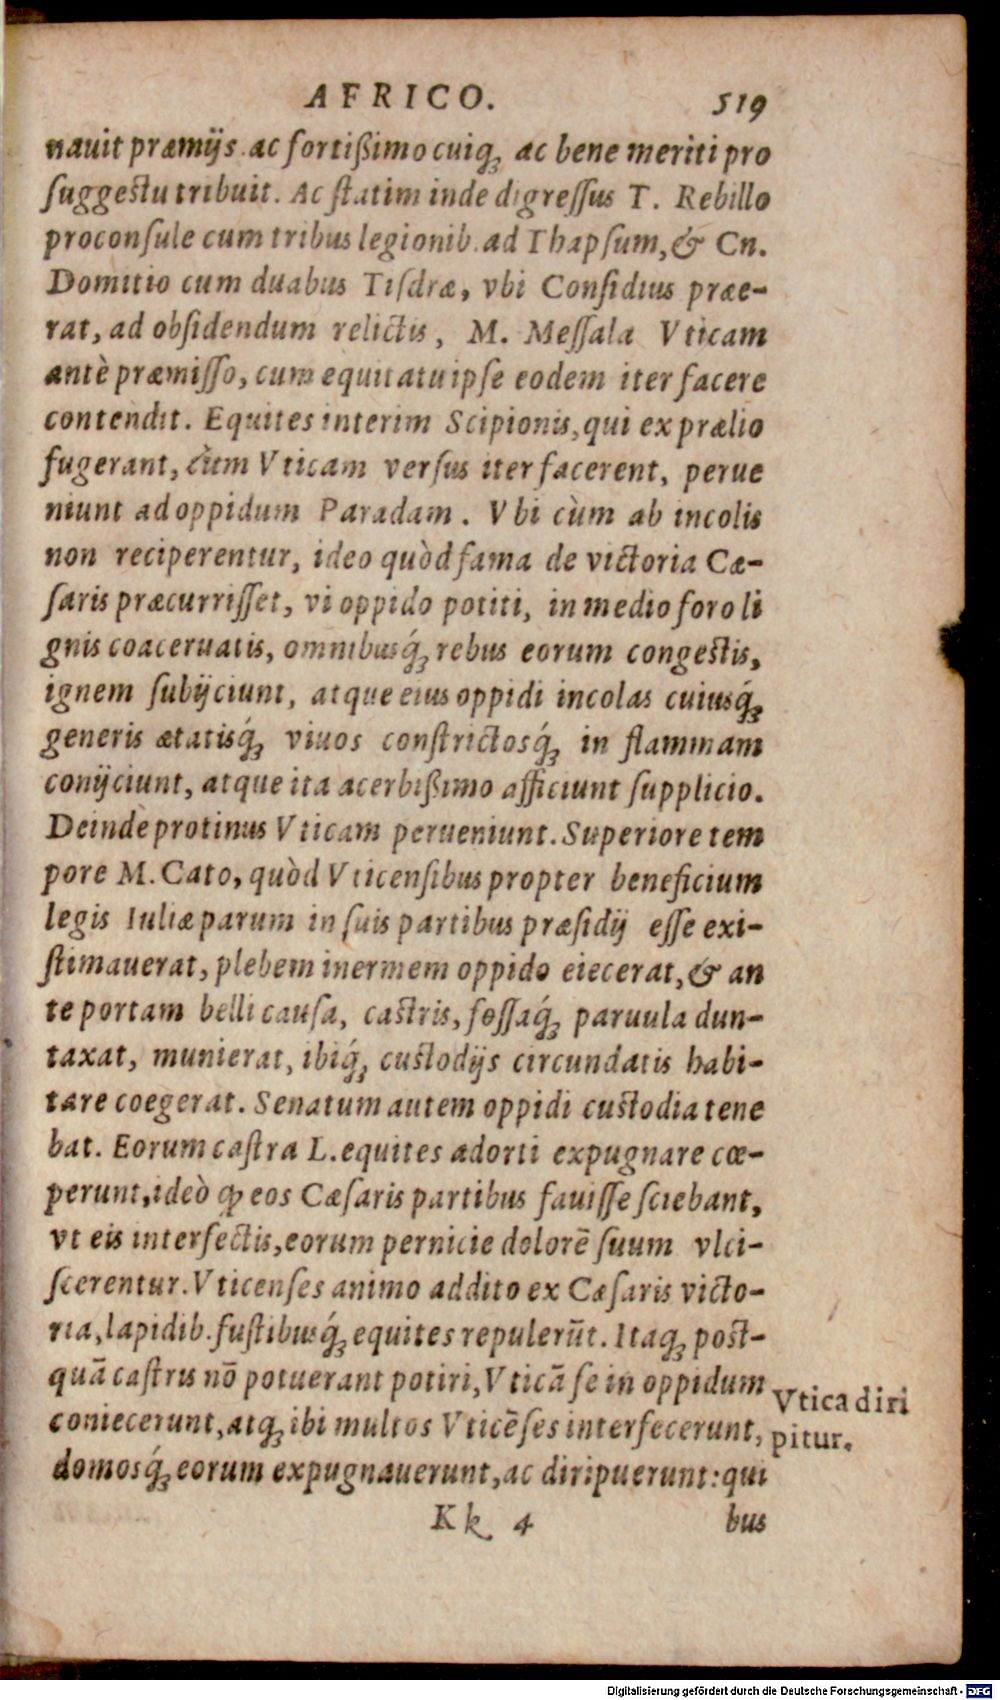 AFRICO. 519
nauit præmijs ac fortißimo cuiq́ꝫ ac bene meriti pro
ſuggestu tribuit. Ac ſtatim inde digreſſus T. Rebillo
proconſule cum tribus legionib. ad Thapſum, & Cn.
Domitio cum duabus Tiſdræ, vbi Conſidius præe-
rat, ad obſidendum relictis, M. Meſſala Vticam
antè præmiſſo, cum equitatu ipſe eodem iter facere
contendit. Equites interim Scipionis, qui ex prælio
fugerant, cùm Vticam verſus iter facerent, perue
niunt ad oppidum Paradam. Vbi cùm ab incolis
non reciperentur, ideo quòd fama de victoria Cæ-
ſaris præcurriſſet, vi oppido potiti, in medio foro li
gnis coaceruatis, omnibusq́ꝫ rebus eorum congestis,
ignem ſubijciunt, atque eius oppidi incolas cuiusq́ꝫ
generis ætatisq́ꝫ viuos conſtrictosq́ꝫ in flammam
conijciunt, atque ita acerbißimo afficiunt ſupplicio.
Deinde protinus Vticam perueniunt. Superiore tem
pore M. Cato, quòd Vticenſibus propter beneficium
legis Iuliæ parum in ſuis partibus præſidij eſſe exi-
ſtimauerat, plebem inermem oppido eiecerat, & an
te portam belli cauſa, castris, foſſaq́ꝫ paruula dun-
taxat, munierat, ibiq́ꝫ custodijs circundatis habi-
tare coegerat. Senatum autem oppidi custodia tene
bat. Eorum caſtra L. equites adorti expugnare cœ-
perunt, ideò ꝙ eos Cæſaris partibus fauiſſe ſciebant,
vt eis interfectis, eorum pernicie dolorē ſuum vlci-
ſcerentur. Vticenſes animo addito ex Cæſaris victo-
ria, lapidib. fuſtibusq́ꝫ equites repulerūt. Itaqꝫ post-
quā caſtris nō potuerant potiri, Vticā ſe in oppidum
coniecerunt, atqꝫ ibi multos Vticēſes interfecerunt,
domosq́ꝫ eorum expugnauerunt, ac diripuerunt: qui
Vtica diri
pitur.
Kk 4 bus
Digitalisierung gefördert durch die Deutsche Forschungsgemeinschaft - DFG